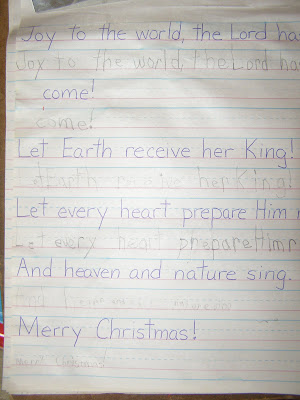 Joy to the world, the Lord ha
Joy to the world, the Lord ha
come!
come!
Let Earth receive her King!
Let Earth receive her King!
Let every heart prepare Him r
Let every heart prepare Him r
And heaven and nature sing.
And heaven and nature
Merry Christmas!
merry Christmas